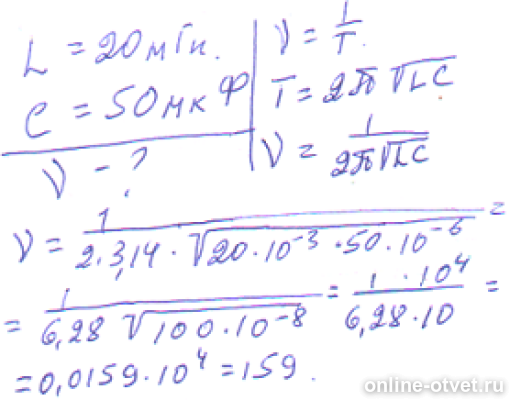 L = 20 мГн.
C = 50 мк Ф
ν - ?
ν = 1/T.
T = 2π √LC
ν = 1/2π√LC
ν = 1/2·3,14·√20·10⁻³·50·10⁻⁶ =
= 1/6,28 √100·10⁻⁸ = 1·10⁴/6,28·10 =
= 0,0159·10⁴ = 159.
online-otvet.ru